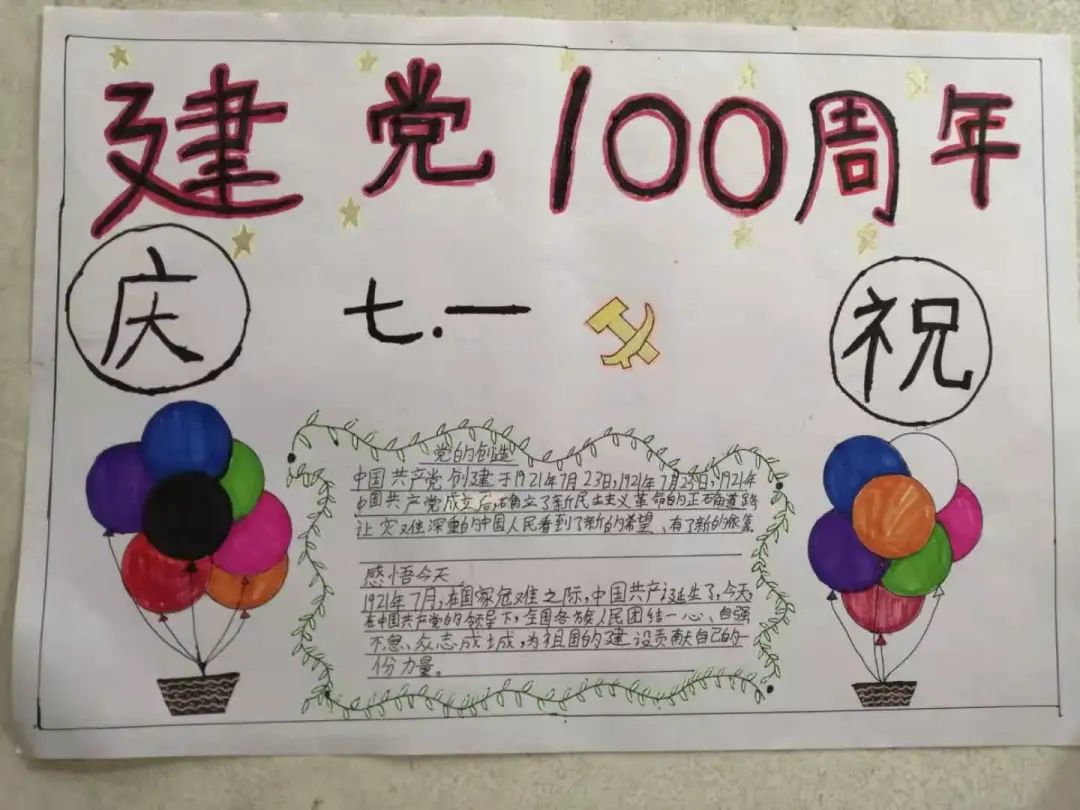 建党100周年
庆 七.一 祝
党的创造
中国共产党创建于1921年7月23日,1921年7月23日,1921年
中国共产党成立后,确立了新民主主义革命的正确道路
让灾难深重的中国人民看到了新的希望、有了新的依靠
感悟今天
1921年7月,在国家危难之际,中国共产诞生了,今天,
在中国共产党的领导下,全国各族人民团结一心、自强
不息、众志成城,为祖国的建设贡献自己的一
份力量。